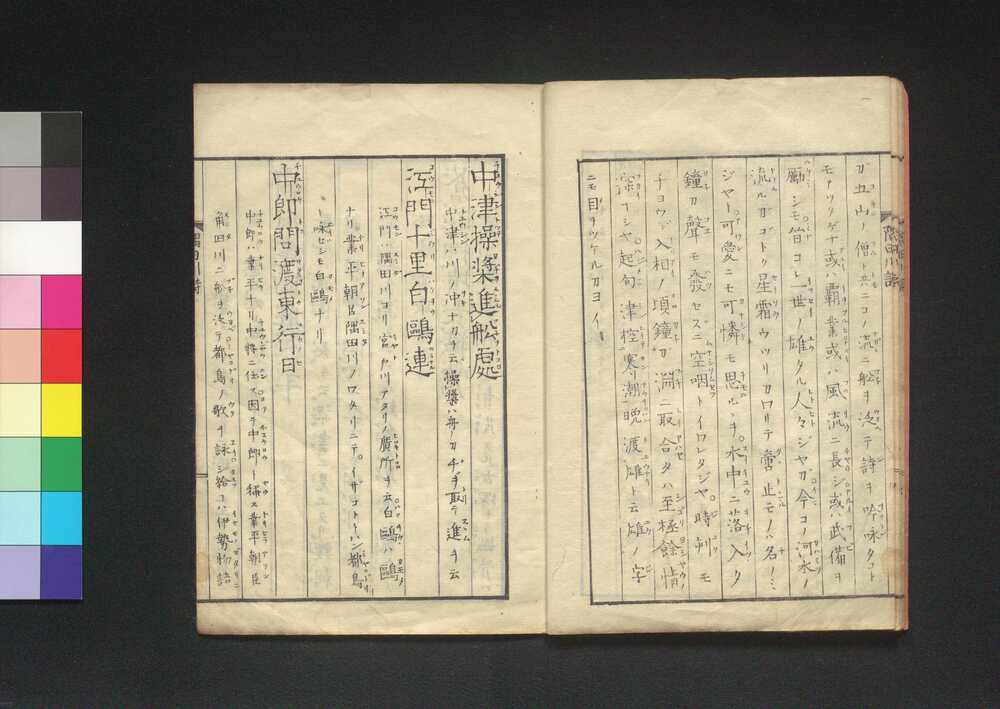 ガ五山ノ僧ト共ニコノ流ニ船ヲ泛テ詩ヲ吟咏タコト
モアツツゲナ或ハ覇業或ハ風流ニ長シ或ハ武備ヲ
勵シモ皆コレ一世ノ雄タル人々ジヤガ今コノ河水ノ
流ルガゴトク星霜ウツリカワリテ啻止モノハ名ノミ
ジヤ可愛ニモ可憐モ思ルヽヲ水中ニ落入タ
鐘ガ聲モ發セスニ空咽トイワレタジヤ時刻モ
チヨウド入相ノ頃鐘ガ淵ニ取合タハ至極餘情
深フシヤ起句津控寒潮晩渡雄ト云雄ノ字
ニモ目ヲツケルガヨイ
隅田川詩
中津操槳進船處
中津ハ川ノ沖ナカヲ云操槳ハ舟ノカヂヲ取テ進ヲ云
江門十里白鷗連
江門ハ隅田川ヨリ宮戸川アタリノ廣所ヲ云白鷗ハ鷗
ナリ業平朝臣隅田川ノワタリニテイザコトトハン都鳥
ト咏セシモ白鷗ナリ
中郎問渡東行日
中郎ハ業平ナリ中將ニ任ス因テ中郎ト稱ス業平朝臣
角田川ニ船ヲ泛テ都鳥ノ歌ヲ詠シ給フハ伊勢物語